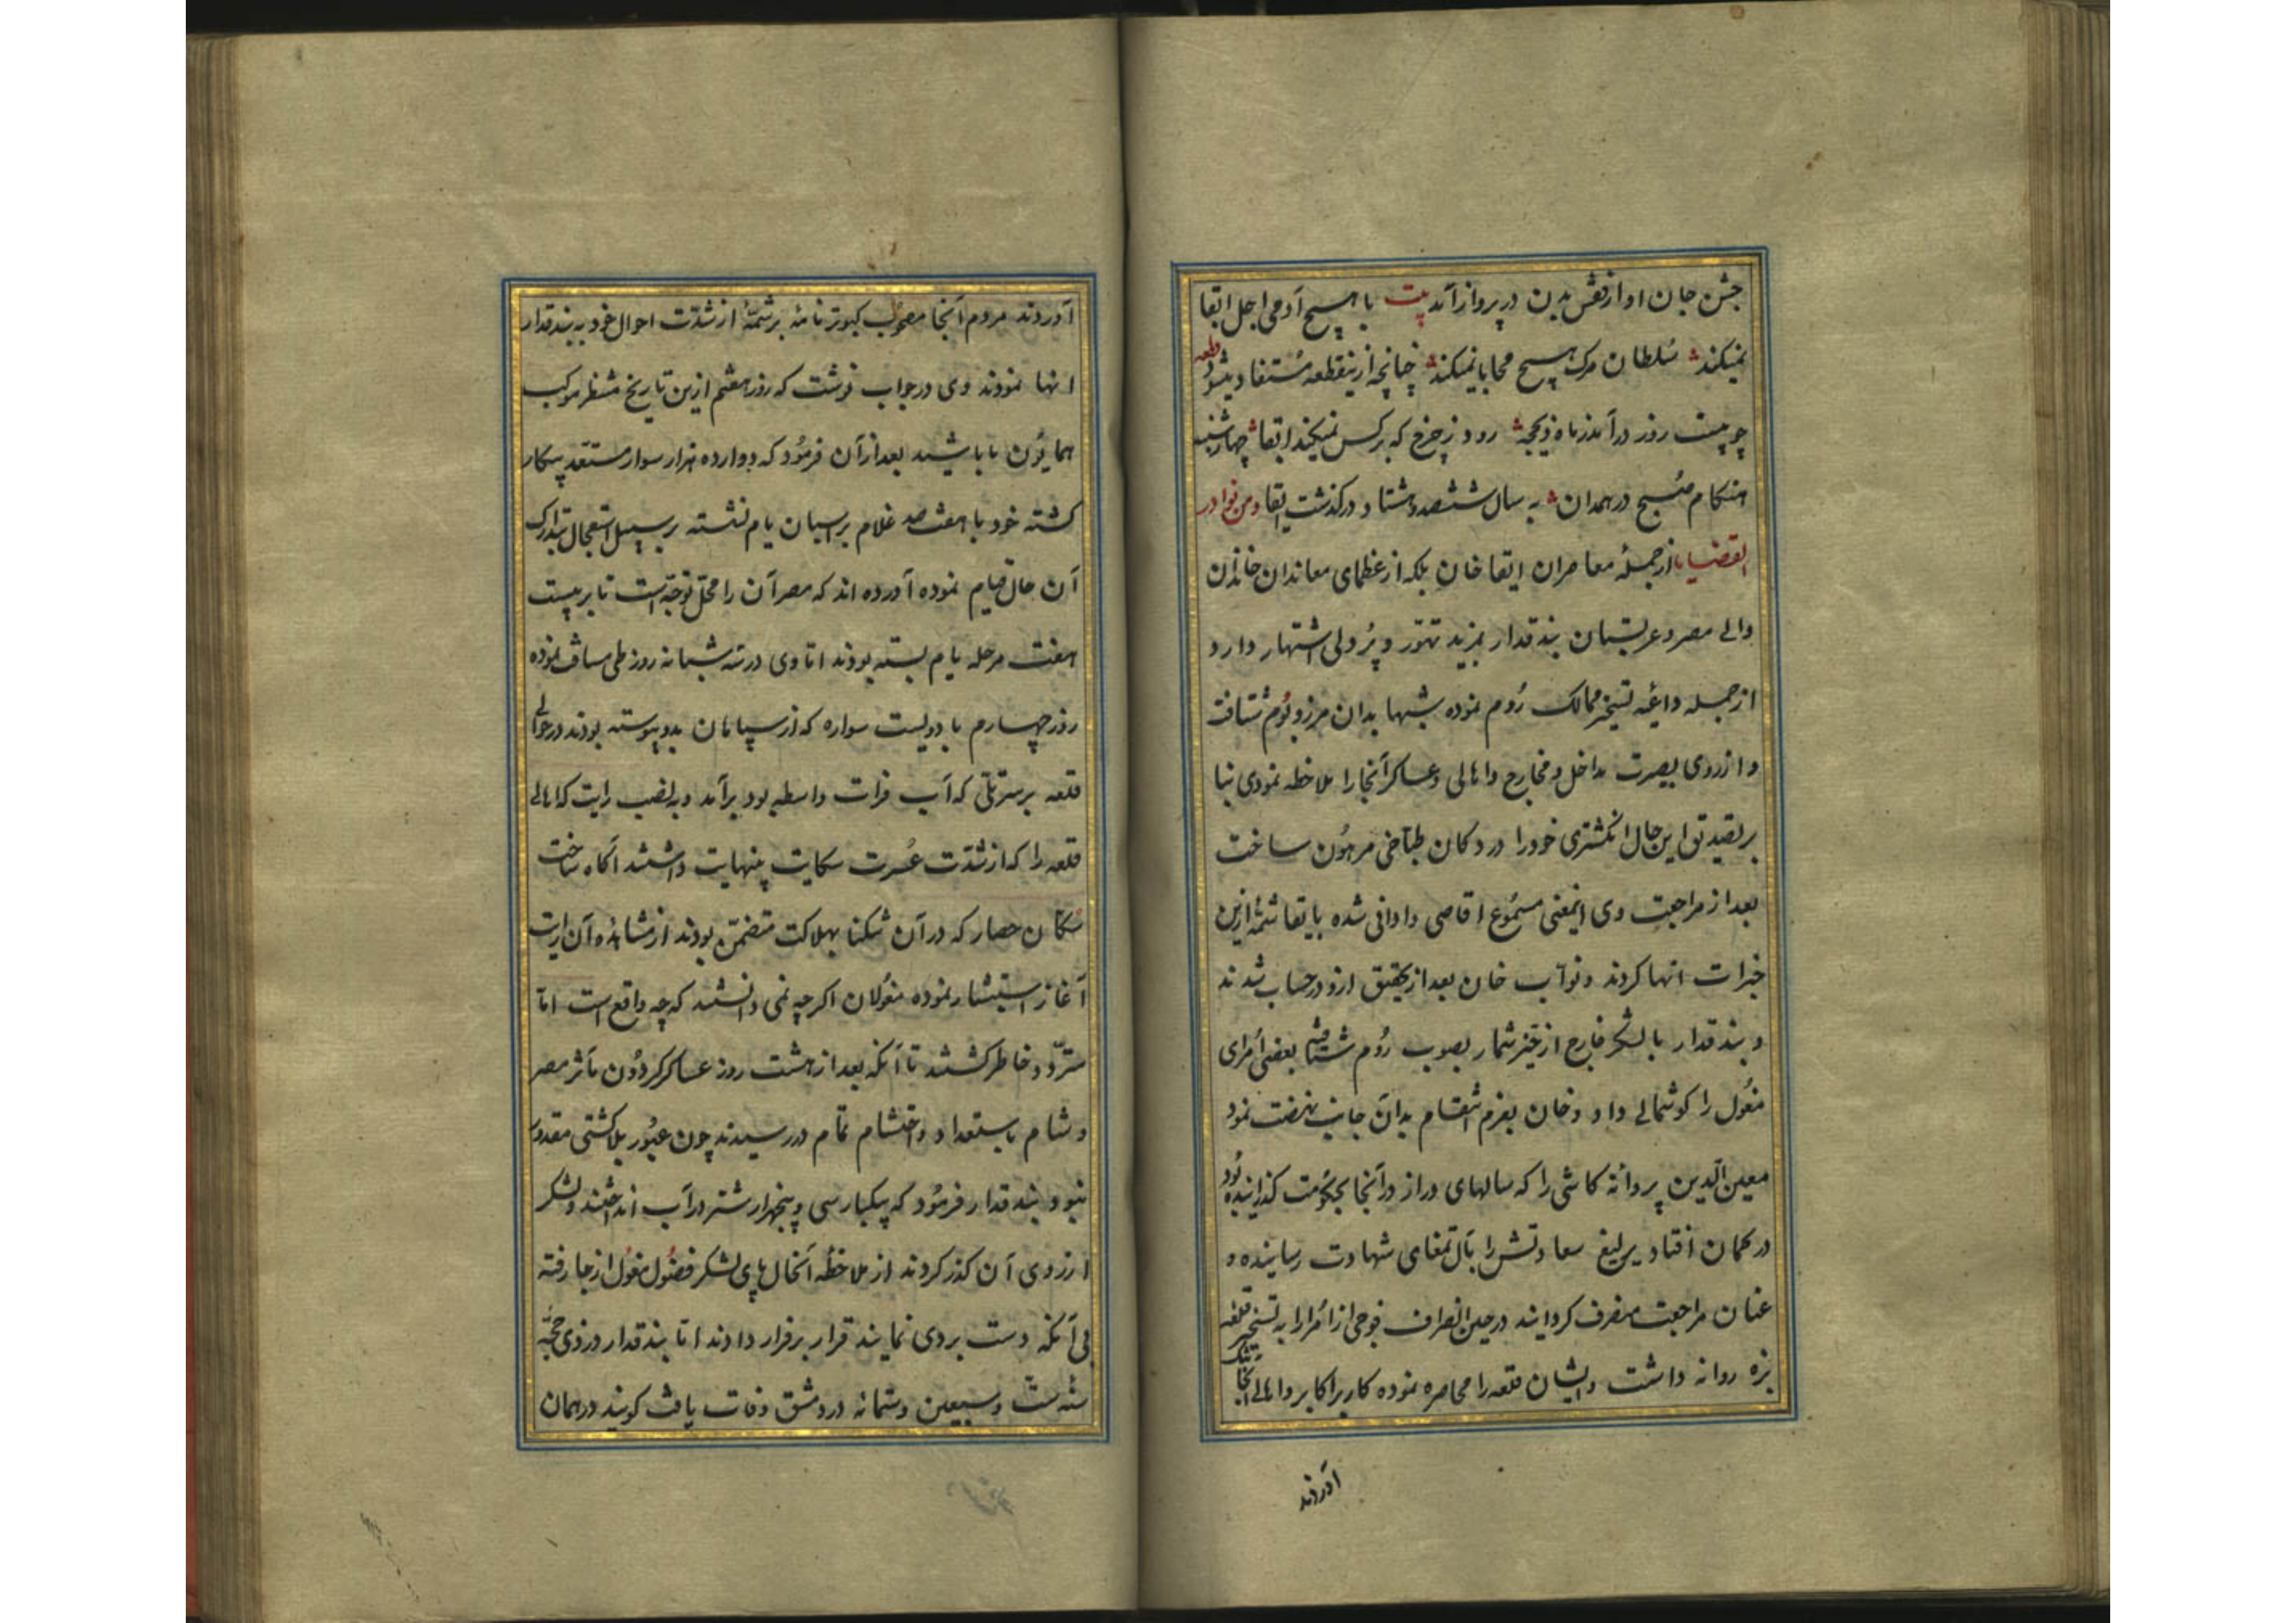 جش جان او از قفس بدن در پرواز آمد بیت با هیچ آدمی اجل ابقا
نمیکند سلطان مرک هیچ محابا نمیکند چنانچه ازینقطعه مستفاد میشود قطعه
چو بیست روز درآمد ز ماه ذیحجه رود ز چرخ که بر کس نمیکند ابقا چهارشنبه
هنکام صبح در همدان به سال ششصد و هشتاد درکذشت ابقا و من نوادر
القضایا از جمله معاصران ابقا خان بلکه از عظمای معاندان خاندان
والی مصر و عربستان بندقدار بمزید تهور و پردلی اشتهار دارد
از جمله داعیه تسخیر ممالک روم نموده شبها بدان مرز و بوم شتافت
و از روی بصیرت مداخل و مخارج و اهالی و عساکر آنجا را ملاحظه نمودی بنا
بر این حال انکشتری خود را در دکان طباخی مرهون ساخت
بعد از مراجعت وی اینمعنی مسموع اقاصی و ادانی شده بابقا شمهٔ ازین
خبرات انها کردند و نوآب خان بعد از تحقیق ازو در حساب شدند
و بندقدار با لشکر خارج از حیز شمار بصوب روم شتافته بعضی امرای
مغول را کوشمالی داد و خان بعزم انتقام بدان جانب نهضت نمود
معین الدین پروانه کاشی را که سالهای دراز در آنجا بحکومت کذرانیده بود
در کمان افتاد یرلیغ سعادتش را بآل تمغای شهادت رسانیده و
عنان مراجعت منصرف کردانید در حین انصراف فوجی از امرا را به تسخیر قلعه
بزه روانه داشت و ایشان قلعه را محاصره نموده کار بر اکابر و اهالی آنجا تنک
آوردند
آوردند مردم آنجا مصحوب کبوتر نامهٔ بر شمهٔ از شدت احوال خود به بندقدار
انها نمودند وی در جواب نوشت که روز هفتم ازین تاریخ منتظر موکب
همایون ما باشید بعد از آن فرمود که دوازده هزار سوار مستعد پیکار
کشته خود با هفتصد غلام بر اسبان یام نشسته بر سبیل استعجال بتدارک
آن حال قیام نموده آورده اند که مصر آن را محل توجه است تا بر بیست
هفت مرحله یام بسته بودند اما وی در سه شبانه روز طی مسافت نموده
روز چهارم با دویست سواره که از سپاهان بدو پیوسته بودند در حوالی
قلعه بر سر تلی که آب فرات واسطه بود برآمد و به نصب رایت که اهالی
قلعه را که از شدت عسرت سکایت بنهایت داشتند آکاه ساخت
سکان حصار که در آن تنکنا بهلاکت متضمن بودند از مشاهده آن رایت
آغاز استبشار نموده مغولان اکرچه نمی دانستند که چه واقع است اما
متردد خاطر کشتند تا آنکه بعد از هشت روز عساکر کردون مآثر مصر
و شام باستعداد و احتشام تمام دررسیدند چون عبور بلا کشتی مقدور
نبود بندقدار فرمود که بیکبار سی و پنجهزار شتر در آب انداختند و لشکر
از روی آن کذر کردند از ملاحظه آنحال پای لشکر فضول مغول از جا رفته
بی آنکه دست بردی نمایند قرار بر فرار دادند اما بندقدار در ذی حجه
سنه ست و سبعین و ستمائه در دمشق وفات یافت کویند در همان